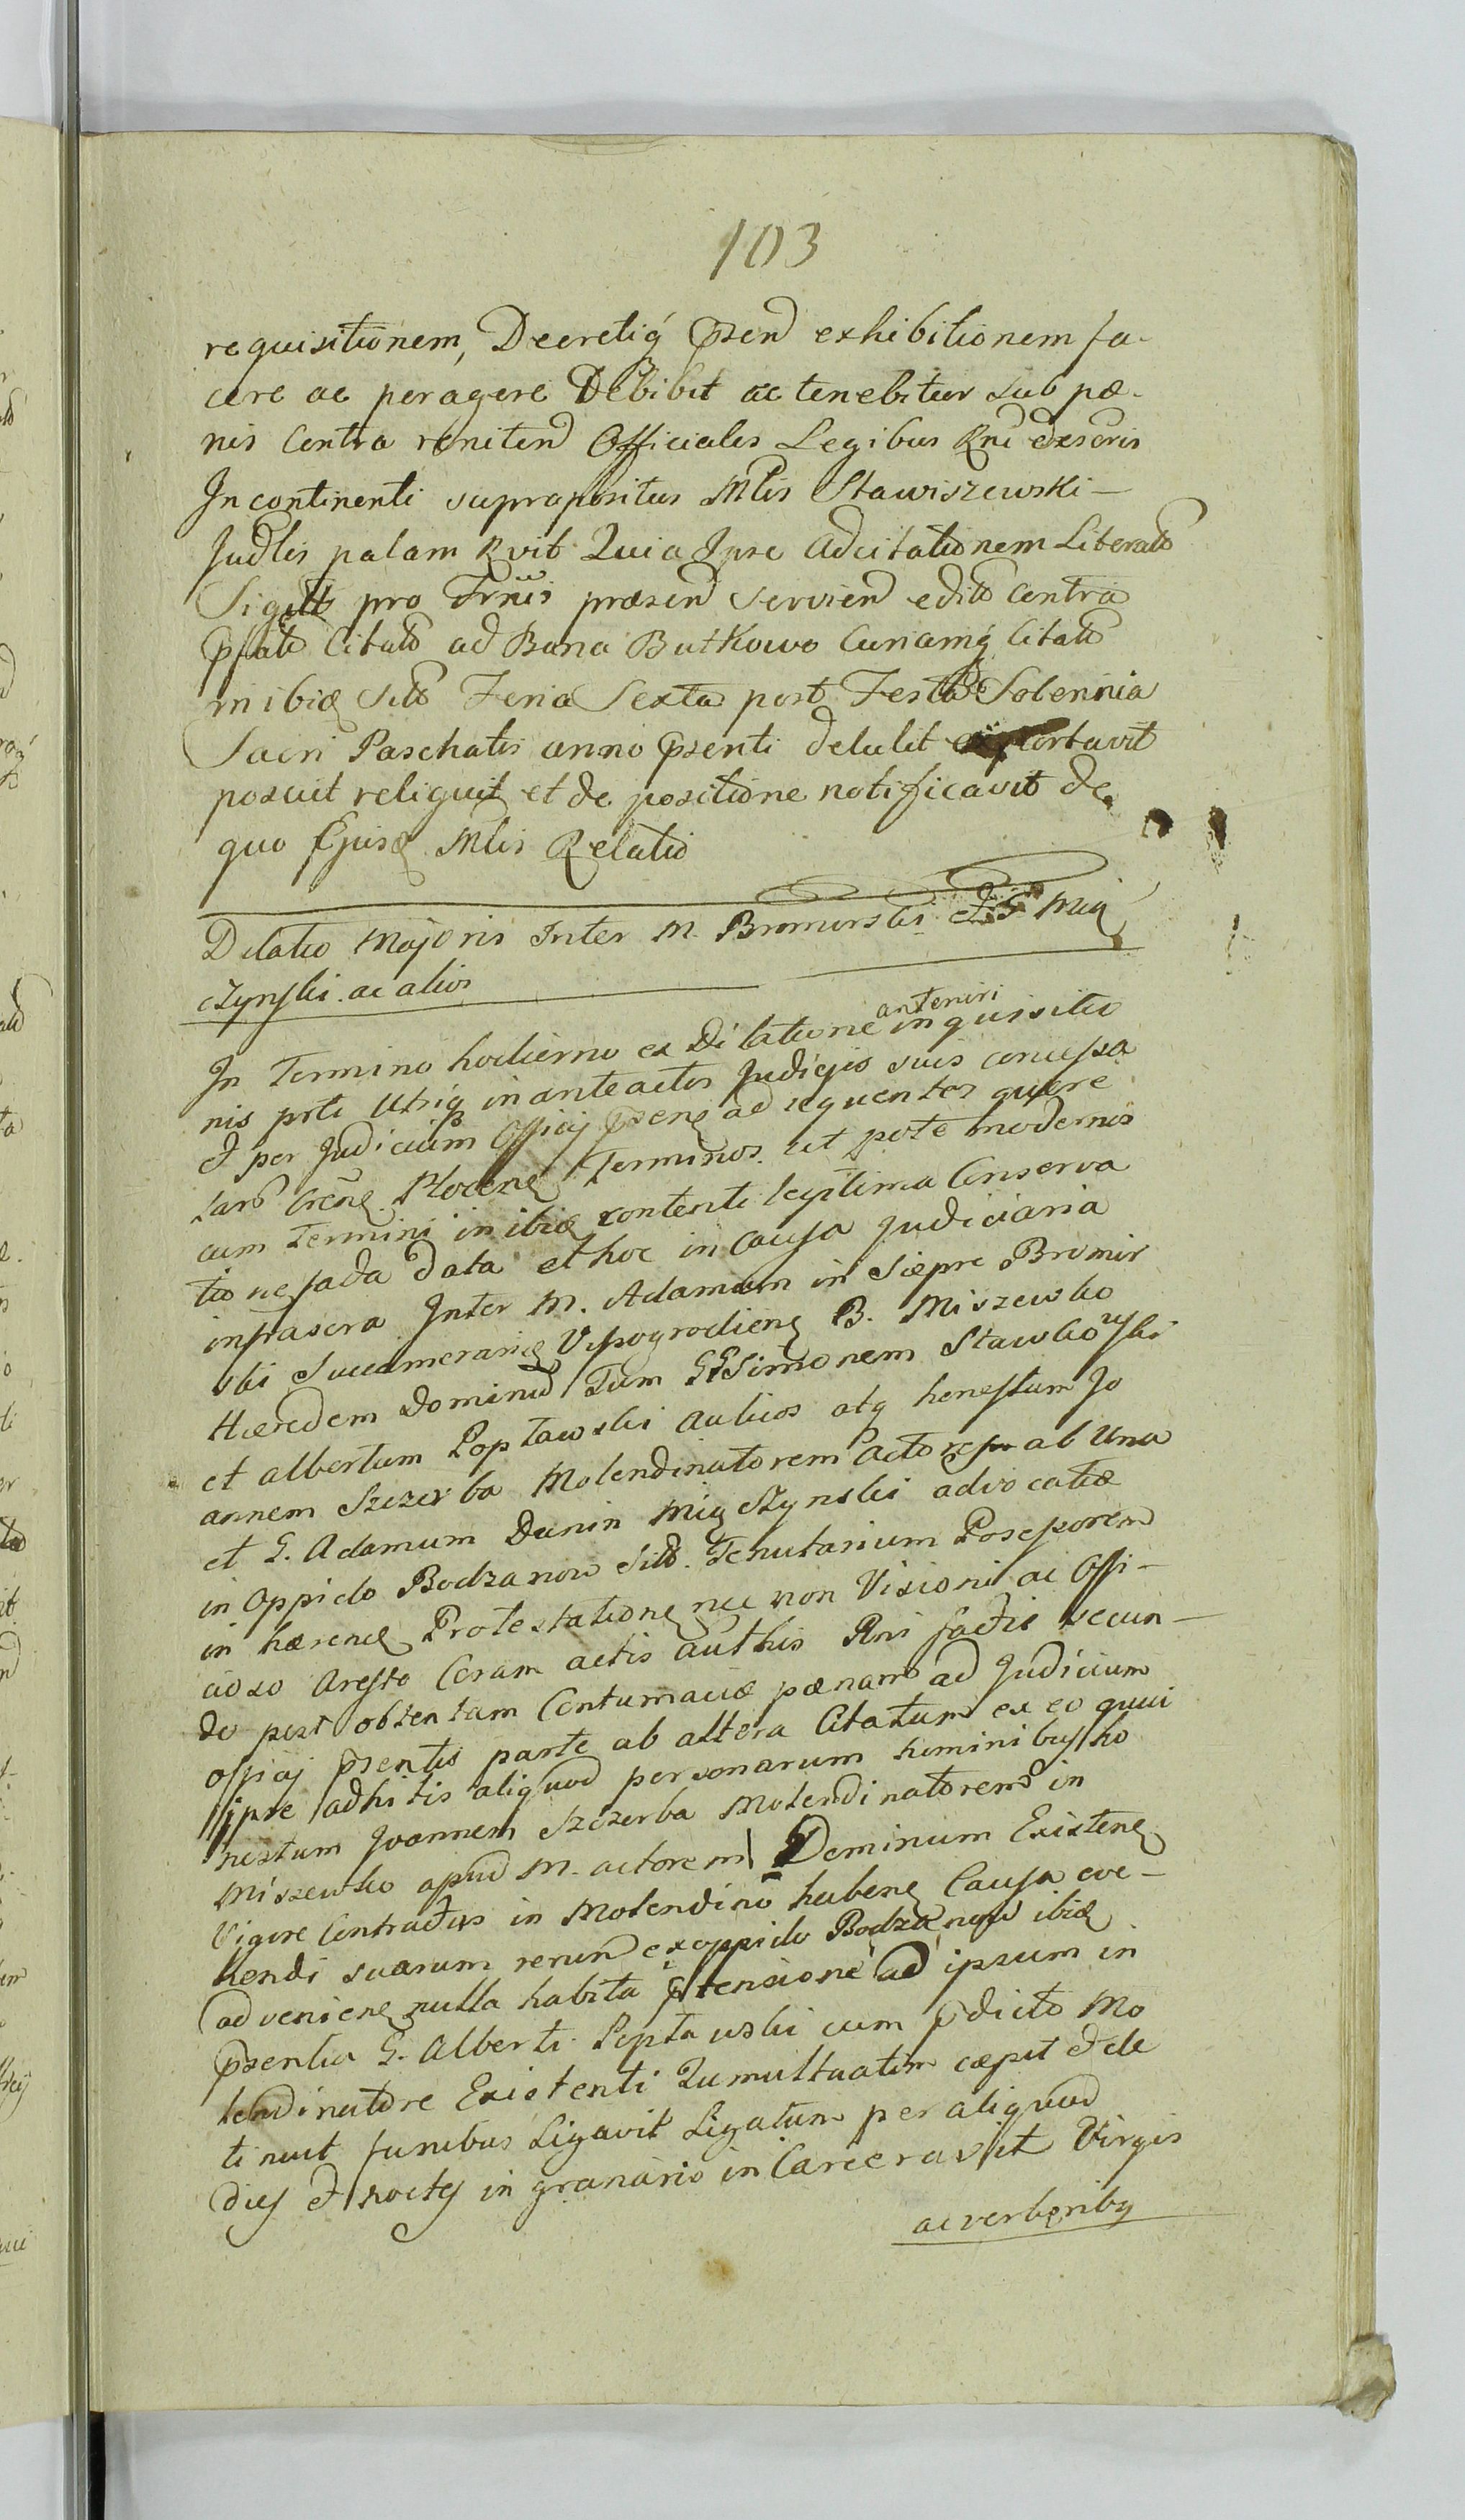 103
requisitionem, Decretiq́ p̃sen exhibitionem fa-
cere ac peragere Debibit ac tenebitur sub pæ-
nis Contra reniten Officiales Legibus Rni
In continenti suprapositus Mlis Stawiszewski —
Judlis palam Rvit Quia Ipse Adcitationem Literato
Sigillt pro Trnis præsen servien edito Contra
p̃fato Citato ad Bona Butkowo Curiamq́ Citato
in ibiđ sito Feria Sexta post Festa Solennia
Sacri Paschatis anno p̃senti detulit
posuit reliquit et de positione notificavit de
quo Ejusđ Mlis Relatio
Dilatio Majoris Inter M. Bromirski et G Mią
czynski ac alios
In Termino hodierno ex Dilatione anteriri inquisitio
nis prti Utriq in anteactis Judicijs suis concessa
et per Judicium Officij p̃senς ad sequentes quære
larũ Crẽnς Plocenς Terminos ut pote modernos
cum Termini in ibiđ contenti legitima Conserva
tione facta data et hoc in Causa Judiciaria
infrascra Inter M. Adamum in Siepre Bromir
ski Succamerariđ Vyszogrodienς B. Miszewko
Hæredem Dominũ Tum GGSimonem Stawkowski
et Albertum Poptawski aulicos atq honestum Jo
annem Szczerba Molendinatorem Actores ab Una
et G. Adamum Dunin Miączynski advocatiæ
in Oppido Bodzanow sito Tenutarium Possessorem
in hærenς Protestationς nec non Visioni ac Offi-
cioso Aresto Coram actis authis Rni factis secun-
do post obtentam Contumaciæ pænam ad Judicium
officij p̃sentis parte ab altera Citatum ex eo quui
ipse adhitis aliquod personarum hominibus ho
nestum Joannem Szczerba Molendinatorem in
Miszewko apud M. actorem Dominum Existenς
Vigore Contractus in Molendino habenς Causa eve-
hendi suarum rerum ex oppido Bodzanow ibiđ
advenienς nulla habita p̃tensione ad ipsum in
p̃sentia G. Alberti Poptawski cum p̃dicto Mo
lendinatore Existenti Tumultuatim cæpit et de
tinuit funibus Ligavit Ligatum per aliquod
dies et noctes in granario in Carceravit Virgis
ac verberiby